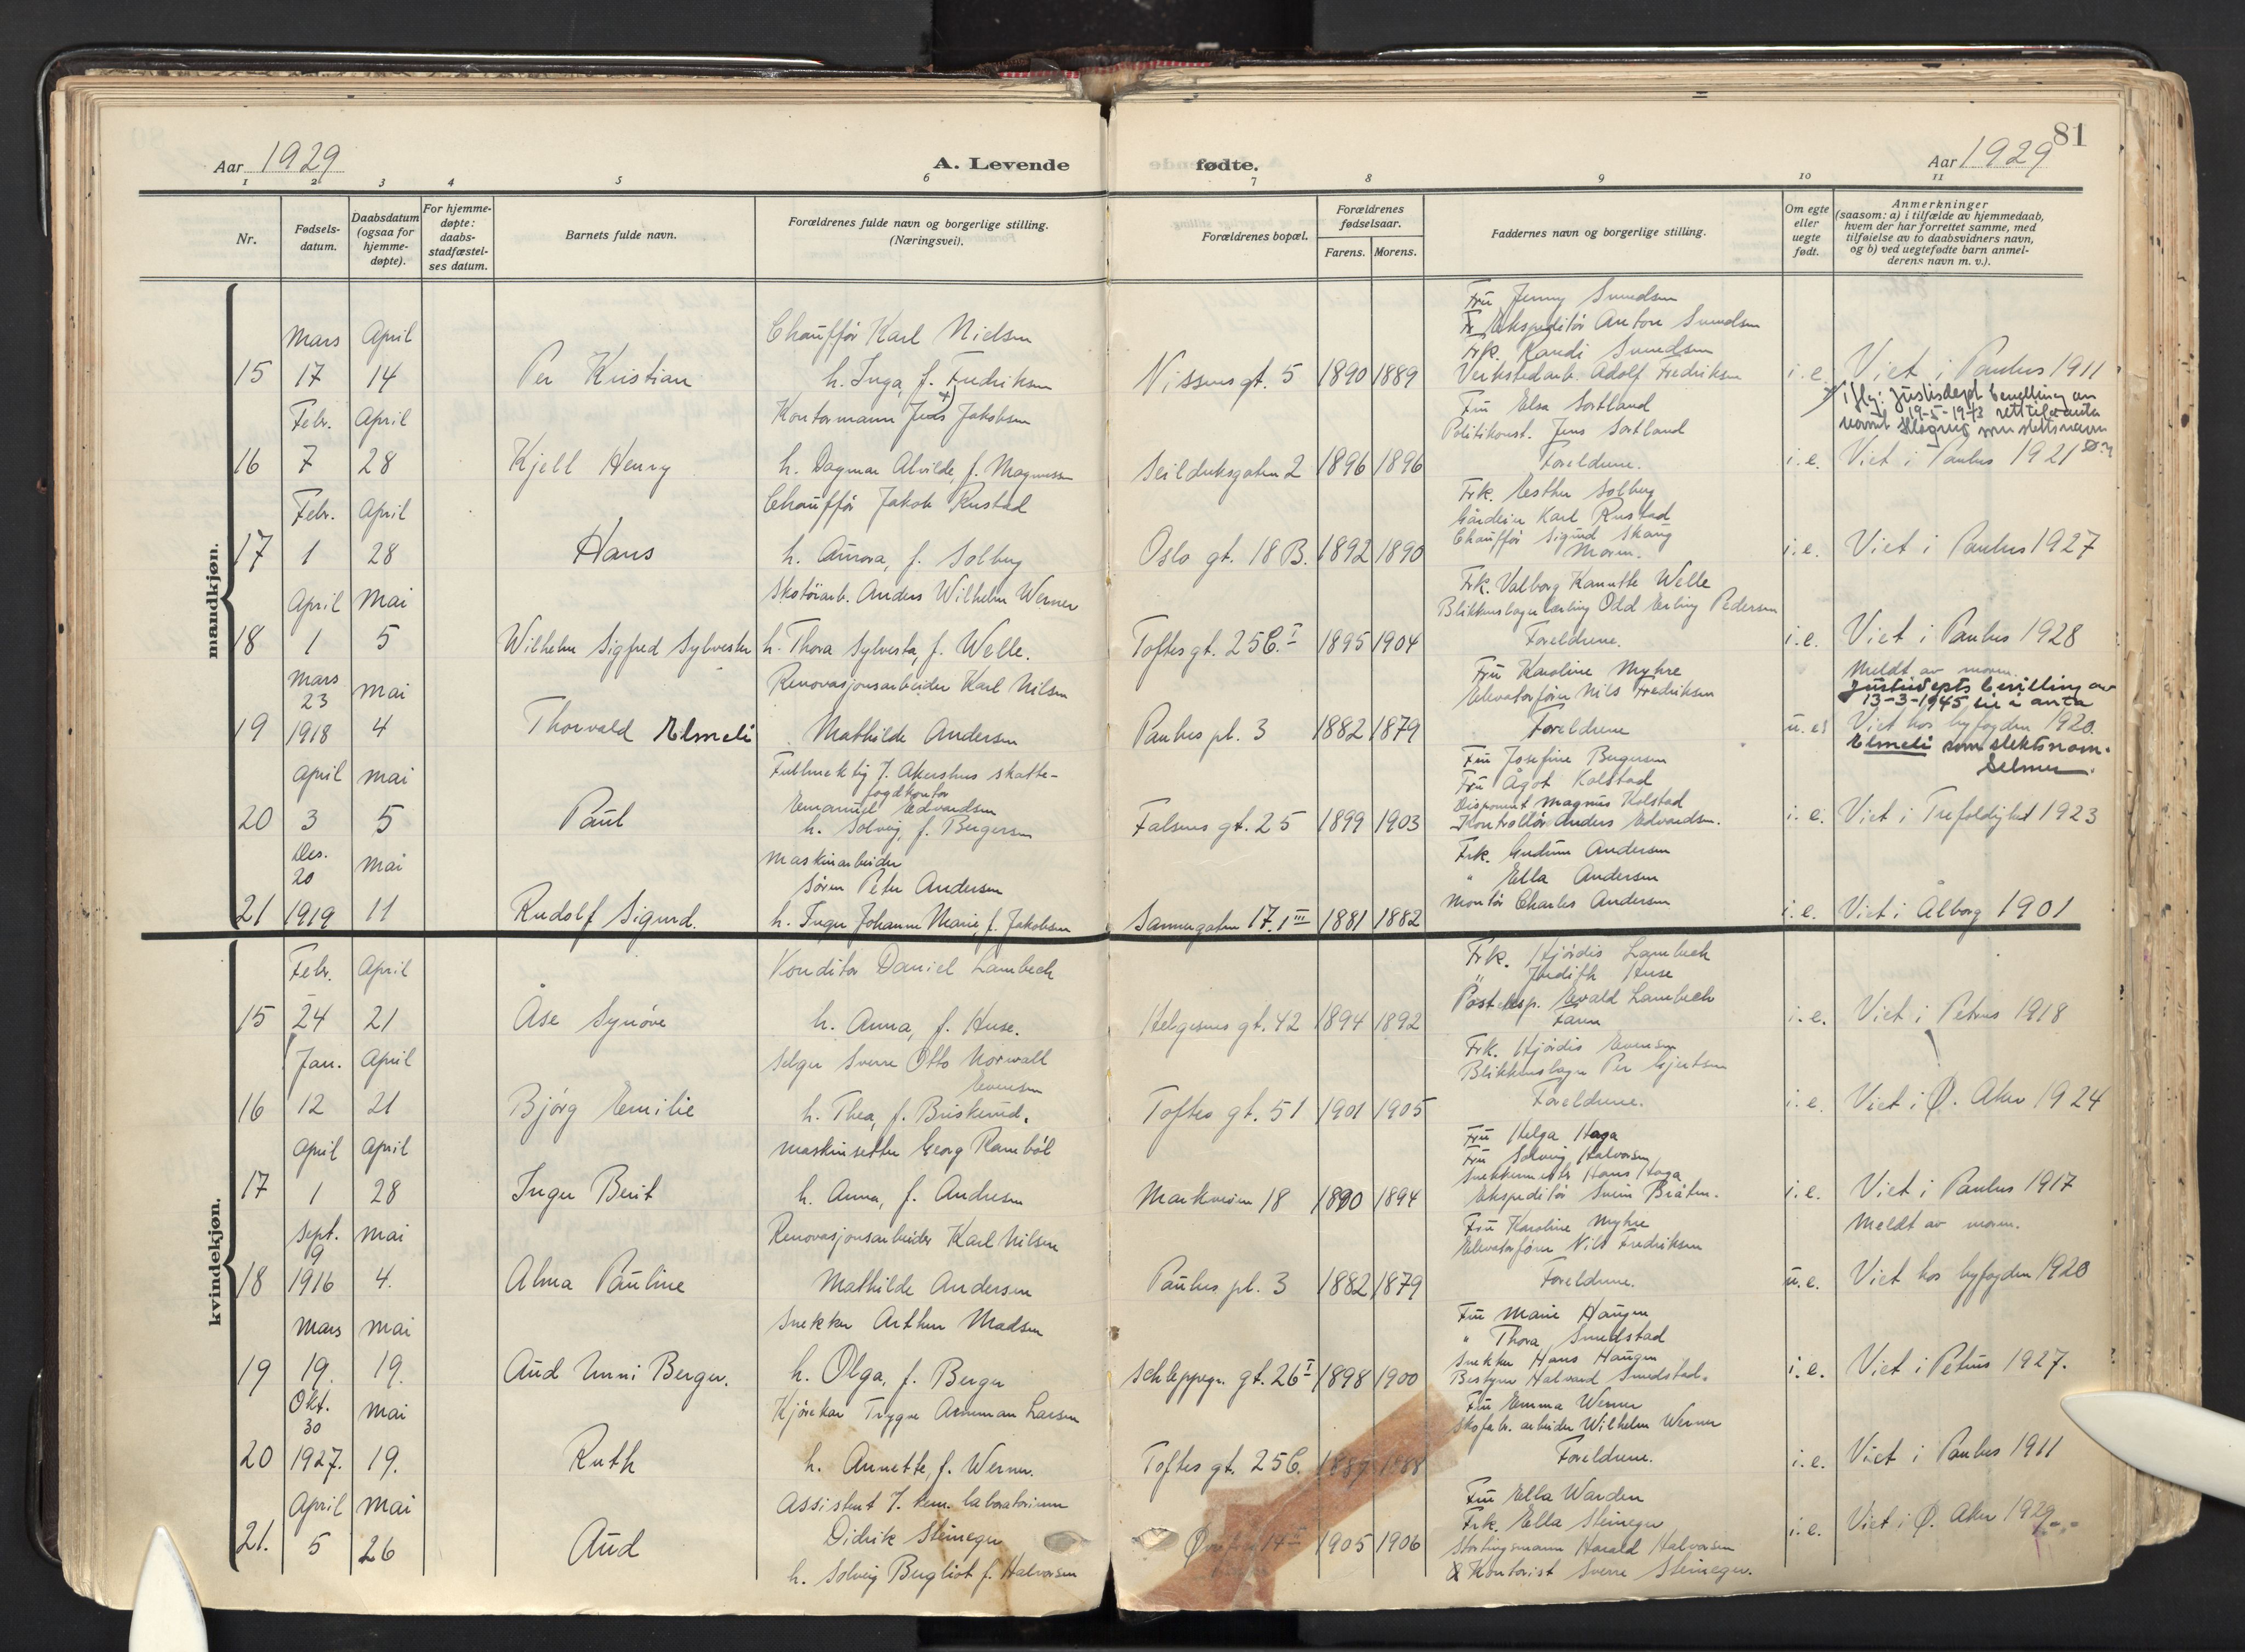 81
Aar 1929
A. Levende
fødte.
Aar 1929
1 2 3 4 5 6 7 8 9 10 11
Nr.
Fødsels-
datum.
Daabsdatum
(ogsaa for
hjemme-
døpte).
For hjemme-
døpte:
daabs-
stadfæstel-
ses datum.
Barnets fulde navn.
Forældrenes fulde navn og borgerlige stilling.
(Næringsvei).
Forældrenes bopæl.
Forældrenes
fødselsaar.
Farens. Morens.
Faddernes navn og borgerlige stilling.
Om egte
eller
uegte
født.
Anmerkninger
(saasom: a) i tilfælde av hjemmedaab,
hvem der har forrettet samme, med
tilføielse av to daabsvidners navn,
og b) ved uegtefødte barn anmel-
derens navn m. v.).
mandkjøn.
15
Mars
17
April
14
Per Kristian
Chauffør Karl Nielsen
h. Inga, f. Fredriksen
Nissens gt. 5
1890 1889
Fru Jenny Svendsen
Ekspeditør Anton Svendsen
Frk. Randi Svendsen
Verkstedarb. Adolf Fredriksen
i. e.
Viet i Paulus 1911
16
Febr.
7
April
28
Kjell Henry
Kontormann Jens Jakobsen
h. Dagmar Alvilde, f. Magnussen
Seilduksgaten 2
1896 1896
Fru Elsa Sortland
Politikonst. Jens Sortland
Foreldrene.
i. e.
Iflg. Justisdept bevilling av
19-5-1943 rett til å anta
navnet som slektsnavn
Viet i Paulus 1921
17
Febr.
1
April
28
Hans
Chauffør Jakob Rustad
h. Aurora, f. Solberg
Oslo gt. 18 B.
1892 1890
Frk. Esther Solberg
Gårdeier Karl Rustad
Chauffør Sigurd Skaug
Moren.
i. e.
Viet i Paulus 1927
18
April
1
Mai
5
Wilhelm Sigfred Sylvester
Skotøiarb. Anders Wilhelm Werner
h. Thora Sylvesta, f. Welle.
Toftes gt. 25 C. I
1895 1904
Frk. Valborg Kanutte Welle
Blikkenslagerlærling Odd Erling Pedersen
Foreldrene.
i. e.
Viet i Paulus 1928
19
Mars
23
1918
Mai
4
Thorvald Elmeli
Renovasjonsarbeider Karl Nilsen
Mathilde Andersen
Paulus pl. 3
1882 1879
Fru Karoline Myhre
Elevatorfører Nils Fredriksen
Foreldrene
u. e.
Meldt av moren.
Justisdepts bevilling av
13-3-1945 til å anta
Viet hos byfogden 1920.
Elmeli som slektsnavn.
Selmer.
20
April
3
Mai
5
Paul
Fullmektig v. Akershus skatte-
fogdkontor
Emanuel Edvardsen
h. Solveig, f. Bergersen
Falsens gt. 25
1899 1903
Fru Josefine Bergersen
Fru Ågot Kolstad
Disponent Magnus Kolstad
Kontrollør Anders Edvardsen.
i. e.
Viet i Trefoldighet 1923
21
Des.
20
1919
Mai
11
Rudolf Sigurd.
Maskinarbeider
Søren Peter Andersen
h. Inger Johanne Marie, f. Jakobsen
Sannergaten 17. I III
1881 1882
Frk. Gudrun Andersen
" Ella Andersen
Montør Charles Andersen
i. e.
Viet i Ålborg 1901
kvindekjøn.
15
Febr.
24
April
21
Åse Synøve
Konditor Daniel Lambech
h. Anna, f. Huse.
Helgesens gt. 42
1894 1892
Frk. Hjørdis Lambech
" Judith Huse
Posteksp. Evald Lambech
Faren
i. e.
Viet i Petrus 1918
16
Jan.
12
April
21
Bjørg Emilie
Selger Sverre Otto Norwall
Evensen
h. Thea, f. Briskerud.
Toftes gt. 51
1901 1905
Frk. Hjørdis Evensen
Blikkenslager Per Gjertsen
Foreldrene.
i. e.
Viet i Ø. Aker 1924
17
April
1
April
28
Inger Berit
Maskinsetter Georg Rambøl
h. Anna, f. Andresen
Markveien 18
1890 1894
Fru Helga Haga
Fru Solveig Halvorsen
Snekkermester Hans Haga
Ekspeditør Svein Bråten.
i. e.
Viet i Paulus 1917
18
Sept.
9
1916
Mai
4.
Alma Pauline
Renovasjonsarbeider Karl Nilsen
Mathilde Andersen
Paulus pl. 3
1882 1879
Fru Karoline Myhre
Elevatorfører Nils Fredriksen
Foreldrene.
u. e.
Meldt av moren.
Viet hos byfogden 1920
19
Mars
19.
Mai
19.
Aud Unni Berger.
Snekker Arthur Madsen
h. Olga, f. Berger
Schleppegr. gt. 26 I
1898 1900
Fru Marie Haugen
" Thora Smedstad
Snekker Hans Haugen
Bestyrer Halvard Smedstad.
i. e.
Viet i Petrus 1927.
20
Okt.
30
1927.
Mai
19.
Ruth
Kjørekar Trygve Larsen
h. Annette, f. Werner.
Toftes gt. 25 C.
1889 1888
Fru Emma Werner
Skofabr. arbeider Wilhelm Werner
Foreldrene.
i. e.
Viet i Paulus 1911
21.
April
5
Mai
26
Aud
Assistent v. kem. laboratorium
Didrik Steineger
h. Solveig Bergliot f. Halvorsen
14 II
1905 1906
Fru Ella Warden
Frk. Ella Steineger
Stortingsmann Harald Halvorsen
Kontorist Sverre Steineger.
i. e.
Viet i Ø. Aker 1929